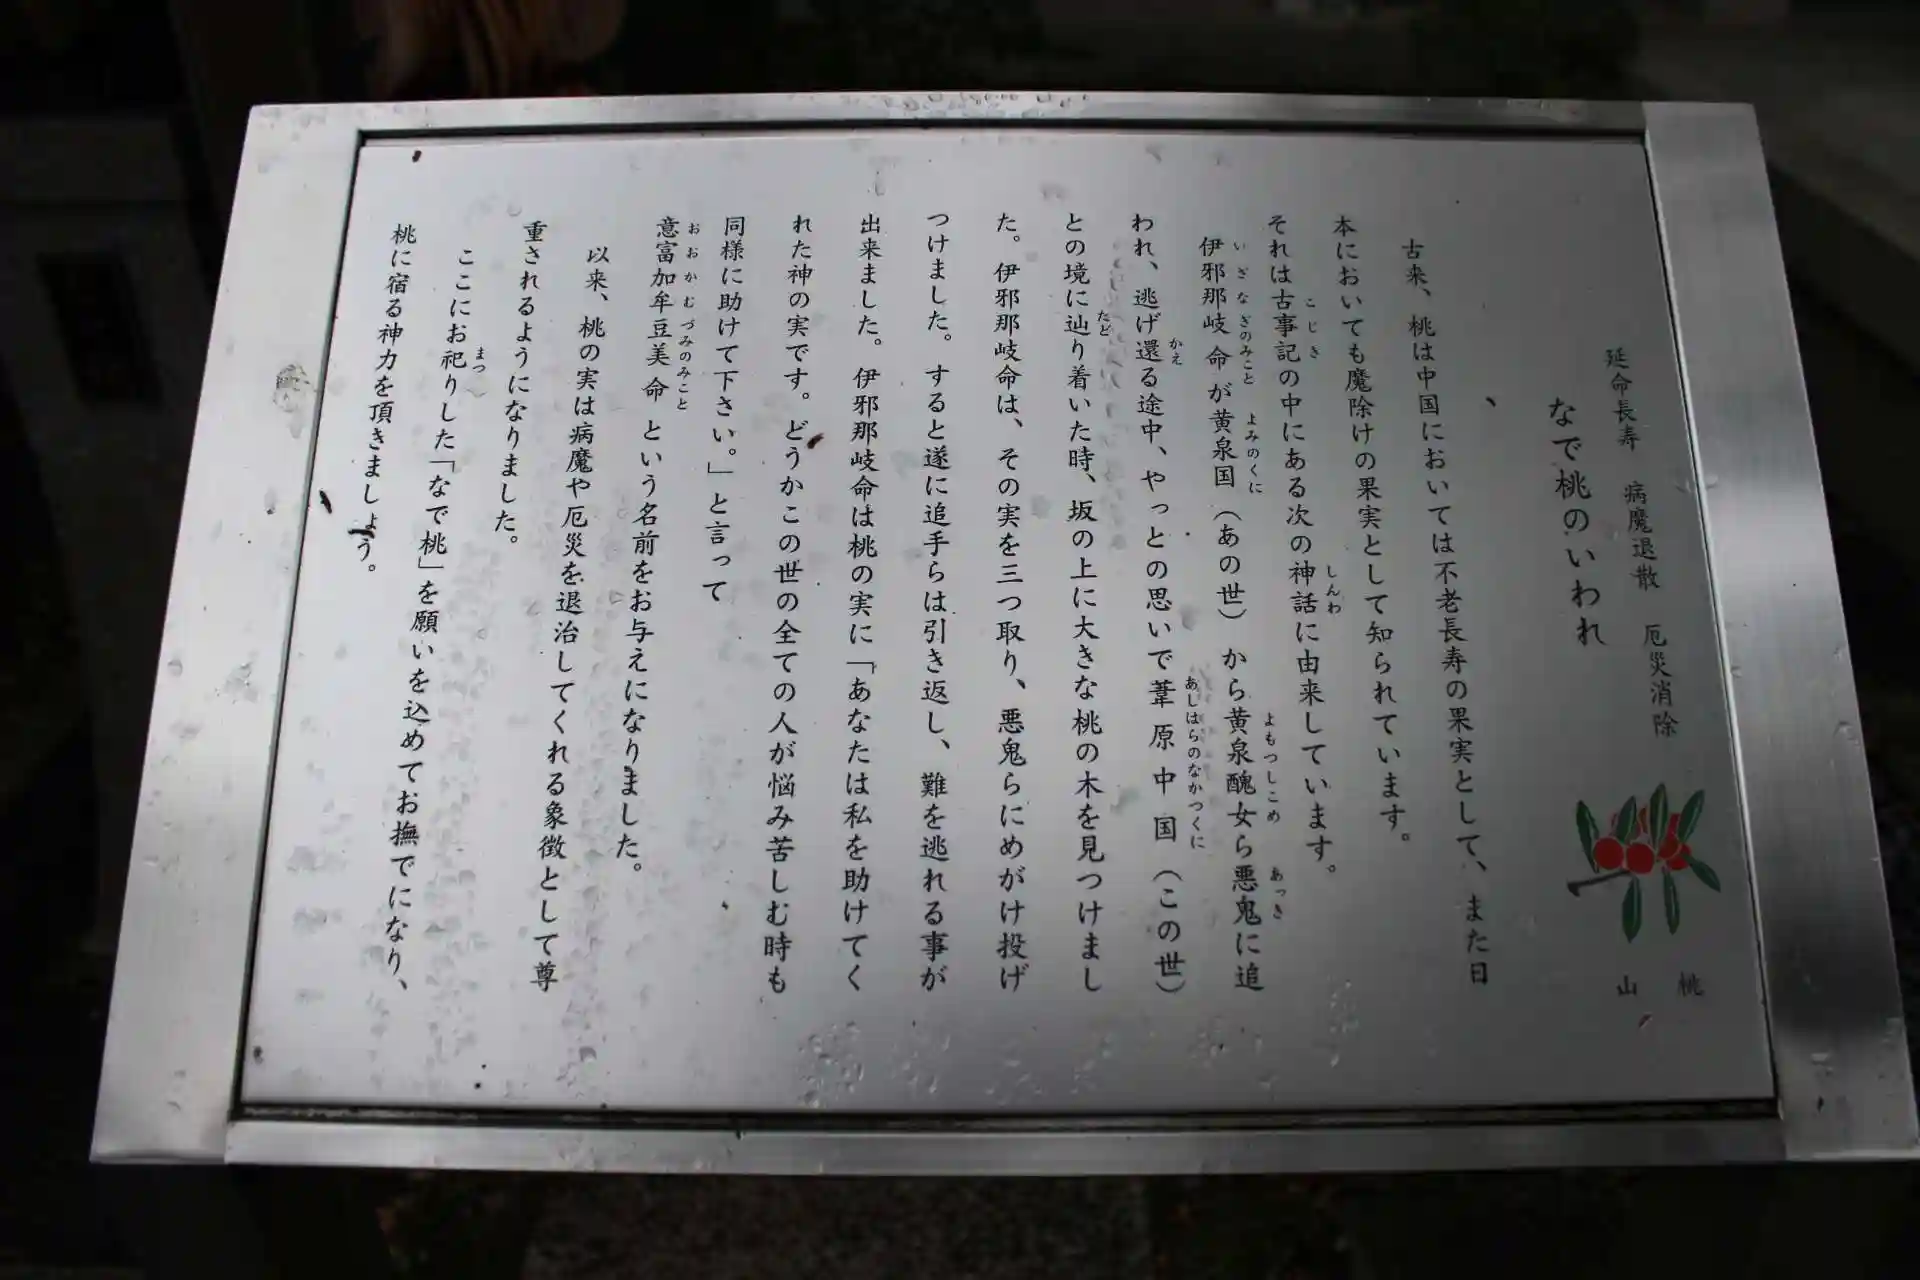 延命長寿 病魔退散 厄災消除
桃
山
なで桃のいわれ
古来、桃は中国においては不老長寿の果実として、また日
本においても魔除けの果実として知られています。
それは古事記の中にある次の神話に由来しています。
こじき
しんわ
伊邪那岐命が黄泉国（あの世）から黄泉醜女ら悪鬼に追
いざなぎのみこと
よみのくに
よもつしこめ
あっき
われ、逃げ還る途中、やっとの思いで葦原中国（この世）
かえ
あしはらのなかつくに
との境に辿り着いた時、坂の上に大きな桃の木を見つけまし
たど
た。伊邪那岐命は、その実を三つ取り、悪鬼らにめがけ投げ
つけました。すると遂に追手らは引き返し、難を逃れる事が
出来ました。伊邪那岐命は桃の実に「あなたは私を助けてく
れた神の実です。どうかこの世の全ての人が悩み苦しむ時も
同様に助けて下さい。」と言って
意富加牟豆美命という名前をお与えになりました。
おおかむづみのみこと
以来、桃の実は病魔や厄災を退治してくれる象徴として尊
重されるようになりました。
ここにお祀りした「なで桃」を願いを込めてお撫でになり、
まつ
桃に宿る神力を頂きましょう。